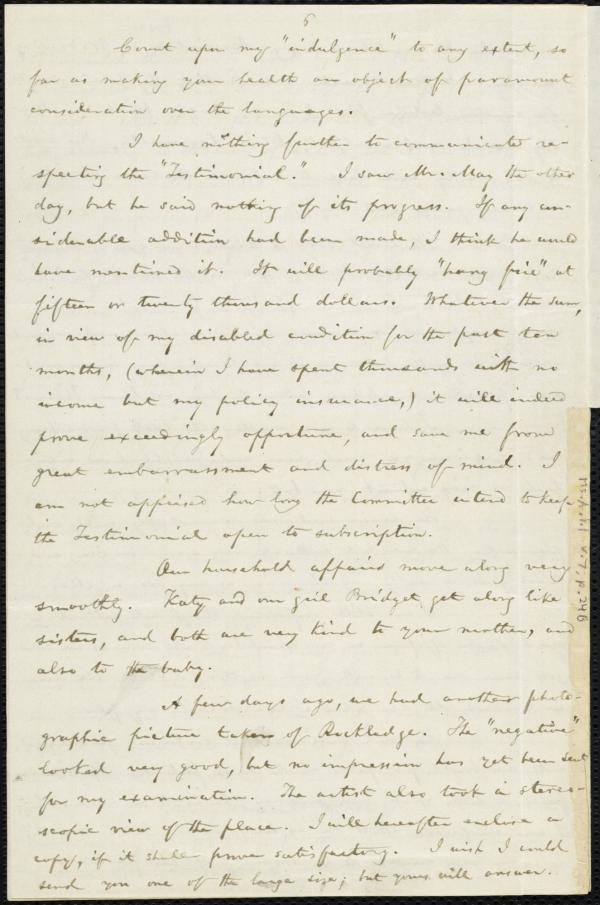 6
Count upon my "indulgence" to any extent, so
far as making your health an object of paramount
consideration over the languages.
I have nothing further to communicate re-
specting the "Testimonial." I saw Mr. May the other
day, but he said nothing of its progress. If any con-
siderable addition had been made, I think he would
have mentioned it. It will probably "hang fire" at
fifteen or twenty thousand dollars. Whatever the sum,
in view of my disabled condition for the past ten
months, (wherein I have spent thousands with no
income but my policy insurance,) it will indeed
prove exceedingly opportune, and save me from
great embarrassment and distress of mind. I
am not apprised how long the Committee intend to keep
the Testimonial open to subscription.
Our household affairs move along very
smoothly. Katy and our girl Bridget get along like
sisters, and both are very kind to your mother, and
also to the baby.
A few days ago, we had another photo-
graphic picture taken of Rockledge. The "negative"
looked very good, but no impression has yet been sent
for my examination. The artist also took a stereo-
scopic view of the place. I will hereafter enclose a
copy, if it shall prove satisfactory. I wish I could
send you one of the large size; but yours will answer.
Ms.A.1.1 v.7, p.24B